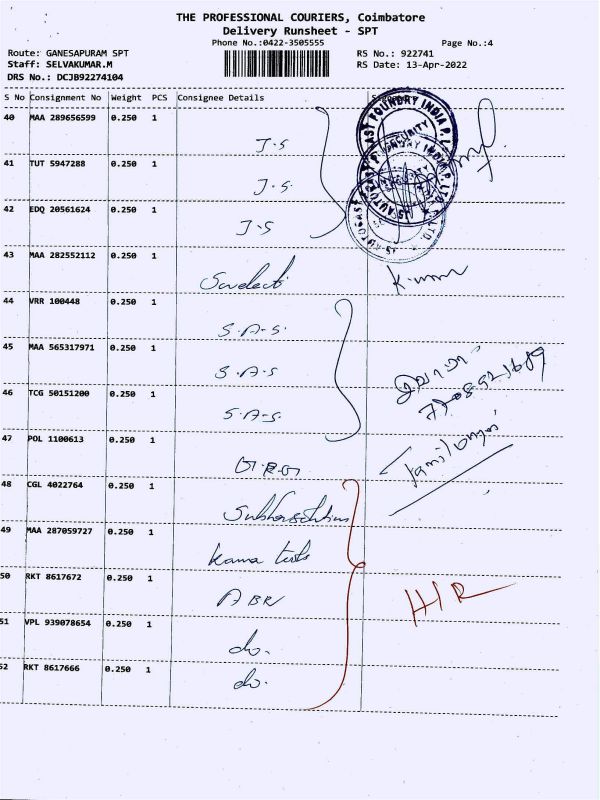 THE PROFESSIONAL COURIERS, Coimbatore
Delivery Runsheet - SPT
Phone No.:0422-3505555
Page No.:4
Route: GANESAPURAM SPT
RS No.: 922741
Staff: SELVAKUMAR.M
RS Date: 13-Apr-2022
DRS No.: DCJB92274104
S No Consignment No Weight PCS Consignee Details
40 MAA 289656599 0.250 1
J.S
41 TUT 5947288 0.250 1
J.S.
42 EDQ 20561624 0.250 1
J.S
43 MAA 282552112 0.250 1
Kumar
44 VRR 100448 0.250 1
S.A.S.
45 MAA 565317971 0.250 1
S.A.S
46 TCG 50151200 0.250 1
S.A.S.
47 POL 1100613 0.250 1
48 CGL 4022764 0.250 1
49 MAA 287059727 0.250 1
50 RKT 8617672 0.250 1
ABR
H/R
51 VPL 939078654 0.250 1
do.
52 RKT 8617666 0.250 1
do.